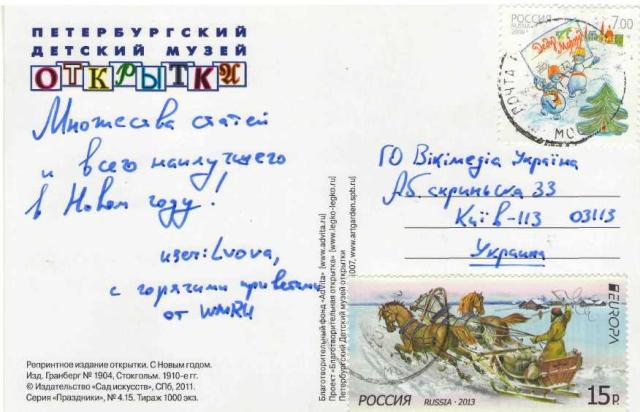 ПЕТЕРБУРГСКИЙ
ДЕТСКИЙ МУЗЕЙ
ОТКРЫТКИ
Множества статей
и всего наилучшего
в Новом году!
user:Lvova,
с горячими приветами
от WMRU
Репринтное издание открытки. С Новым годом.
Изд. Гранберг № 1904, Стокгольм. 1910-е гг.
© Издательство «Сад искусств», СПб, 2011.
Серия «Праздники», № 4.15. Тираж 1000 экз.
Благотворительный фонд «AdVita» [www.advita.ru]
Проект «Благотворительная открытка» [www.legko-legko.ru]
Петербургский Детский музей открытки
007, www.artgarden.spb.ru]
РОССИЯ
RUSSIA
7.00
Деду Морозу!
ПОЧТА
МОС
ГО Вікімедіа Україна
Аб. скринька 33
Київ-113 03113
Украина
EUROPA
РОССИЯ RUSSIA · 2013 15р